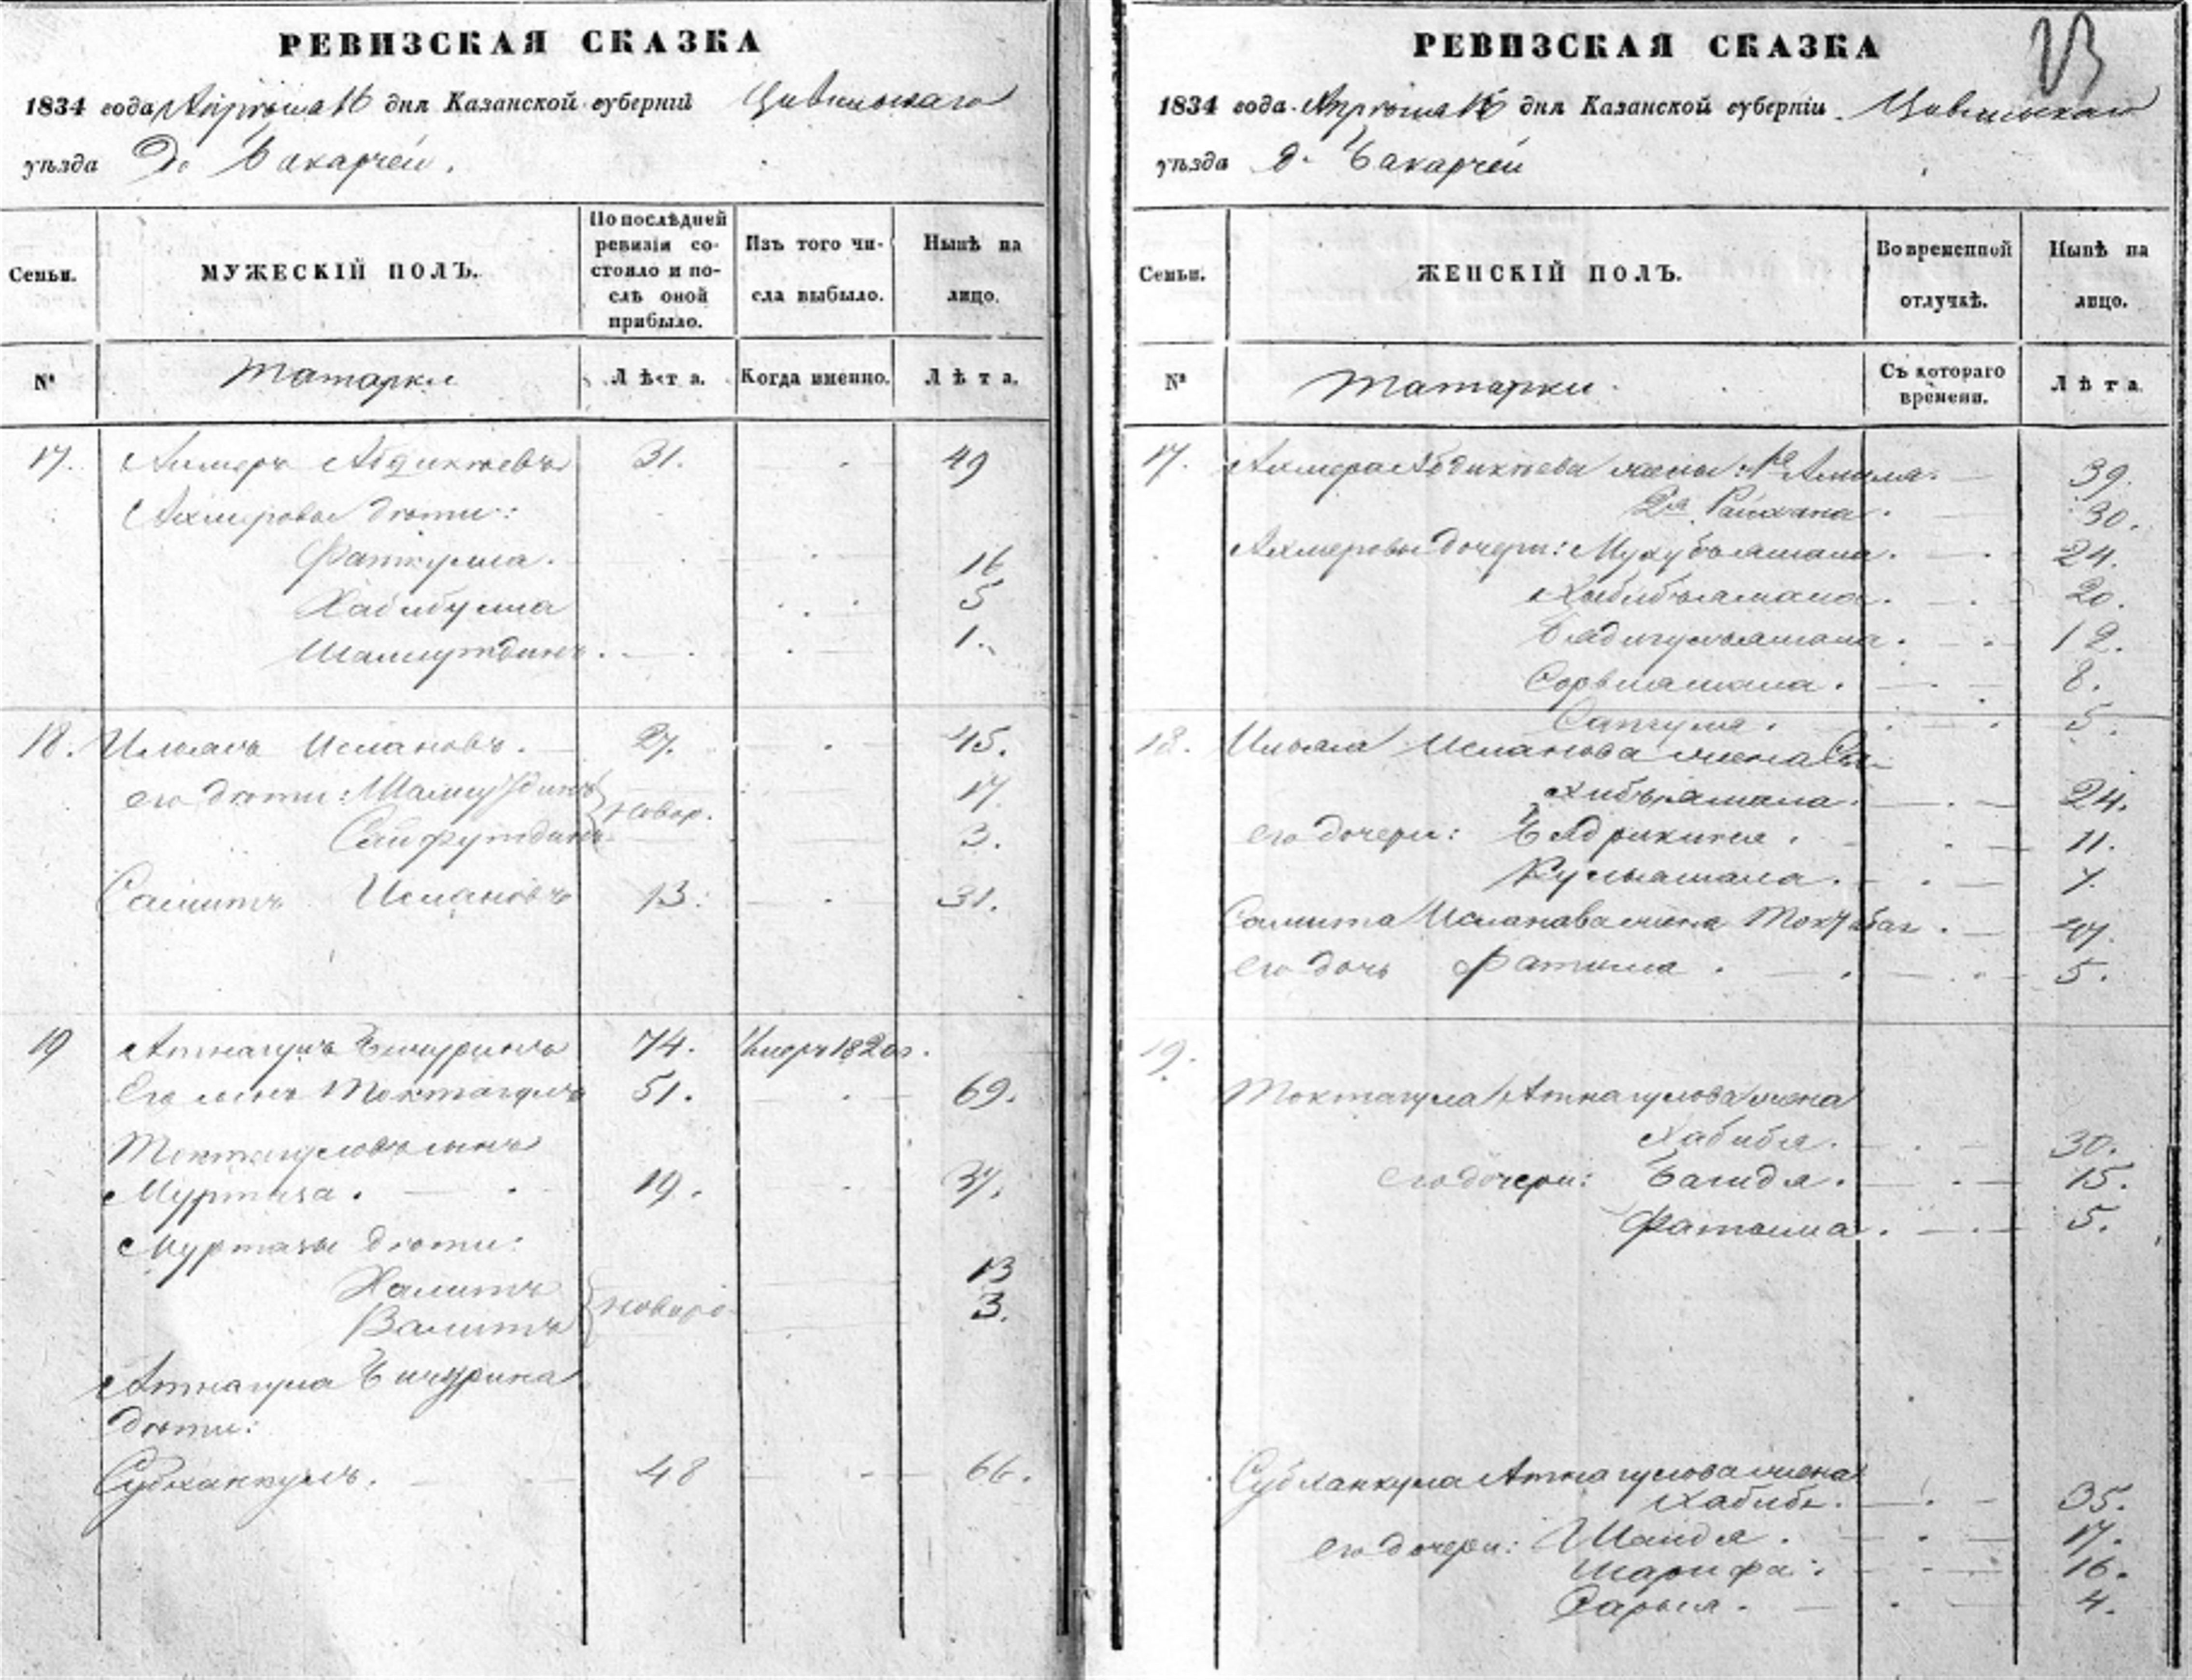 РЕВИЗСКАЯ СКАЗКА
1834 года Апреля 16 дня Казанской губерніи Цивильскаго
уѣзда Д. Бакарчеи.
Семьи.
МУЖЕСКІЙ ПОЛЪ.
По послѣдней ревизіи состояло и послѣ оной прибыло.
Изъ того числа выбыло.
Нынѣ на лицо.
№
Татары
Лѣта.
Когда именно.
Лѣта.
17. Ахмеръ Абдикѣевъ 31. 49
Ахмеровы дѣти:
Фаткулла. 16
Хабибулла 5
Шамшутдинъ. 1.
18. Ильясъ Исмановъ. 27. 45.
его дѣти: Шамшутдинъ 17
новор.
Сайфутдинъ 3.
Самитъ Исмановъ 13. 31.
19 Атнагулъ Бичуринъ 74. Умеръ 1820 г.
Его сынъ Токтагулъ 51. 69.
Токтагуловъ сынъ
Муртаза. 19. 37.
Муртазы дѣти:
Халитъ 13
новоро
Валитъ 3.
Атнагула Бичурина
дѣти:
Субханкулъ. 48 66.
23
РЕВИЗСКАЯ СКАЗКА
1834 года Апреля 16 дня Казанской губерніи Цивильскаго
уѣзда д. Бакарчеи
Семьи.
ЖЕНСКІЙ ПОЛЪ.
Во временной отлучкѣ.
Нынѣ на лицо.
№
Татарки
Съ котораго времени.
Лѣта
17. Ахмера Абдикѣева жены: 1я 39.
2я Райхана. 30.
Ахмеровы дочери: 24.
20.
12.
8.
5.
18. Ильяса Исманова жена
24.
его дочери: Бядрикамя. 11.
7.
Самита Исманова жена 47.
его дочь Фатима. 5.
19.
Токтагула Атнагулова жена
Хабибя. 30.
его дочери: Багидя. 15.
Фатыма. 5.
Субханкула Атнагулова жена
Хабибя. 35.
его дочери: Шаидя. 17.
Шарифа. 16.
Сарыя. 4.